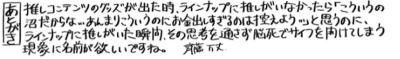 あとがき
推しコンテンツのグッズが出た時、ラインナップに推しがいなかったら「こういうの
沼だからな…あんまりこういうのにお金出しすぎるのは控えよう…」と思うのに、
ラインナップに推しがいた瞬間、その思考を通さず脳死でサイフを開けてしまう
現象に名前が欲しいですね。 齋藤万丈